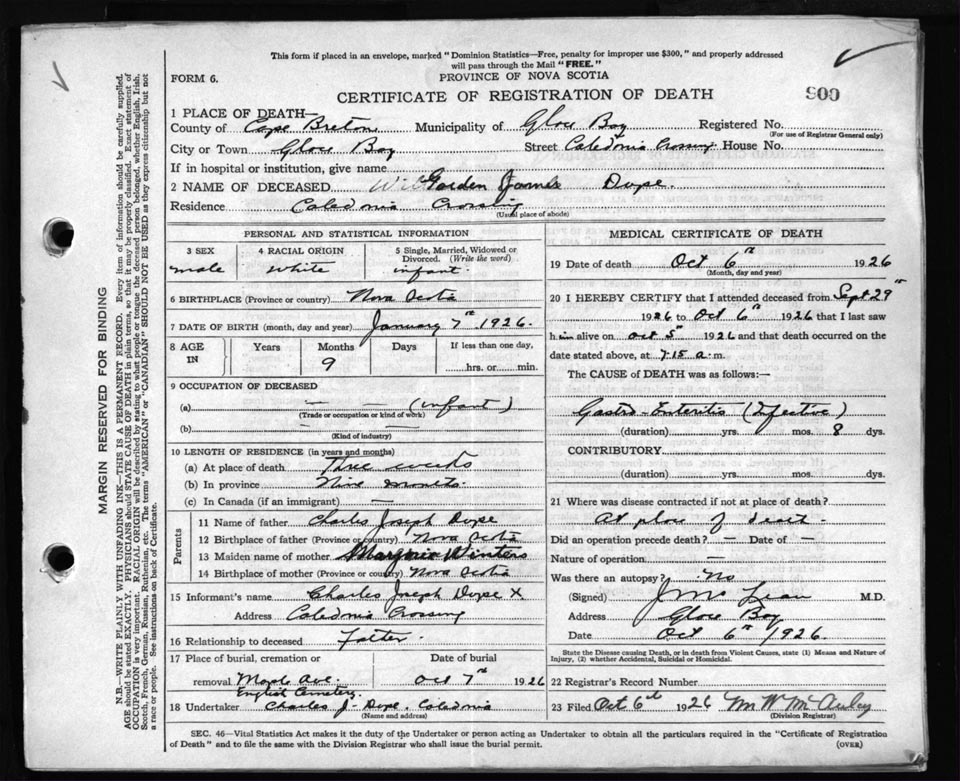 This form if placed in an envelope, marked "Dominion Statistics—Free, penalty for improper use $300," and properly addressed
will pass through the Mail "FREE."
FORM 6.
PROVINCE OF NOVA SCOTIA
CERTIFICATE OF REGISTRATION OF DEATH
900
1 PLACE OF DEATH—
County of Cape Breton Municipality of Glace Bay Registered No.
(For use of Registrar General only)
City or Town Glace Bay Street Caledonia Crossing House No.
If in hospital or institution, give name
2 NAME OF DECEASED Gorden James Dope.
Residence Caledonia Crossing
(Usual place of abode)
PERSONAL AND STATISTICAL INFORMATION
3 SEX 4 RACIAL ORIGIN 5 Single, Married, Widowed or
Divorced. (Write the word)
male white infant.
6 BIRTHPLACE (Province or country) Nova Scotia
7 DATE OF BIRTH (month, day and year) January 7th 1926.
8 AGE IN Years Months Days If less than one day,
9 hrs. or min.
9 OCCUPATION OF DECEASED
(a) — — (infant)
(Trade or occupation or kind of work)
(b)
(Kind of industry)
10 LENGTH OF RESIDENCE (in years and months)
(a) At place of death Three weeks
(b) In province Nine months.
(c) In Canada (if an immigrant) —
Parents
11 Name of father Charles Joseph Dope
12 Birthplace of father (Province or country) Nova Scotia
13 Maiden name of mother Marjorie Winters
14 Birthplace of mother (Province or country) Nova Scotia
15 Informant's name Charles Joseph Dope X
Address Caledonia Crossing
16 Relationship to deceased Father.
17 Place of burial, cremation or Date of burial
removal Maple Ave. Oct 7th 1926
English Cemetery.
18 Undertaker Charles J. Dope. Caledonia
(Name and address)
MEDICAL CERTIFICATE OF DEATH
19 Date of death Oct 6th 1926
(Month, day and year)
20 I HEREBY CERTIFY that I attended deceased from Sept 29th
1926 to Oct 6th 1926 that I last saw
him alive on Oct 5th 1926 and that death occurred on the
date stated above, at 7.15 a.m.
The CAUSE of DEATH was as follows:—
Gastro-Enteritis (Infective)
(duration) yrs. mos. 8 dys.
CONTRIBUTORY.
(duration) yrs. mos. dys.
21 Where was disease contracted if not at place of death?
At place of death.
Did an operation precede death? — Date of —
Nature of operation —
Was there an autopsy? No
(Signed) M.D.
Address Glace Bay
Date Oct 6th 1926.
State the Disease causing Death, or in death from Violent Causes, state (1) Means and Nature of
Injury, (2) whether Accidental, Suicidal or Homicidal.
22 Registrar's Record Number
23 Filed Oct 6th 1926 M W McAuley
(Division Registrar)
SEC. 46—Vital Statistics Act makes it the duty of the Undertaker or person acting as Undertaker to obtain all the particulars required in the "Certificate of Registration
of Death" and to file the same with the Division Registrar who shall issue the burial permit.
(OVER)
MARGIN RESERVED FOR BINDING
N.B.—WRITE PLAINLY WITH UNFADING INK—THIS IS A PERMANENT RECORD. Every item of information should be carefully supplied.
AGE should be stated EXACTLY. PHYSICIANS should STATE CAUSE OF DEATH in plain terms, so that it may be properly classified. Exact statement of
OCCUPATION is very important. RACIAL ORIGIN will be described by stating to what people or tongue the deceased person belonged, whether English, Irish,
Scotch, French, German, Russian, Ruthenian, etc. The terms "AMERICAN" or "CANADIAN" SHOULD NOT BE USED as they express citizenship but not
a race or people. See instructions on back of Certificate.